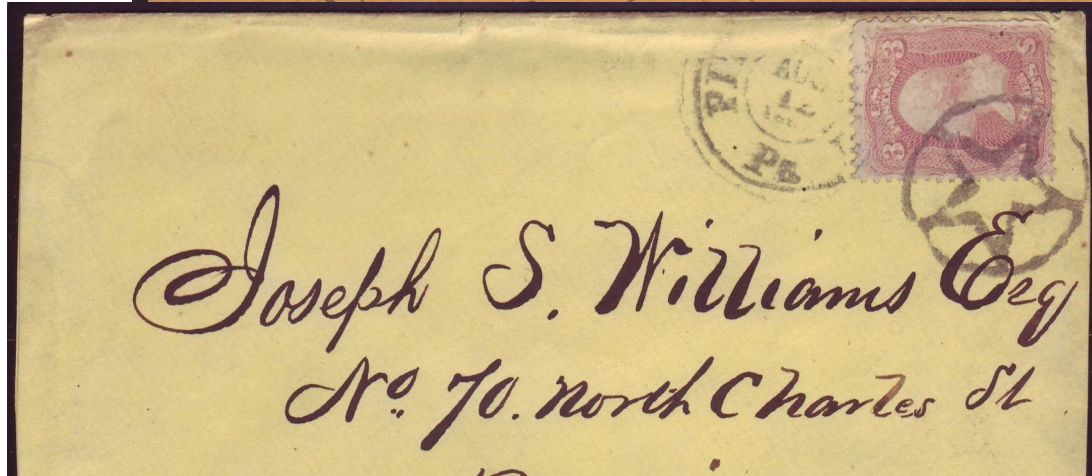 AUG
12
Pa
3 U.S. 3
Joseph S. Williams Esq
No. 70. north Charles St